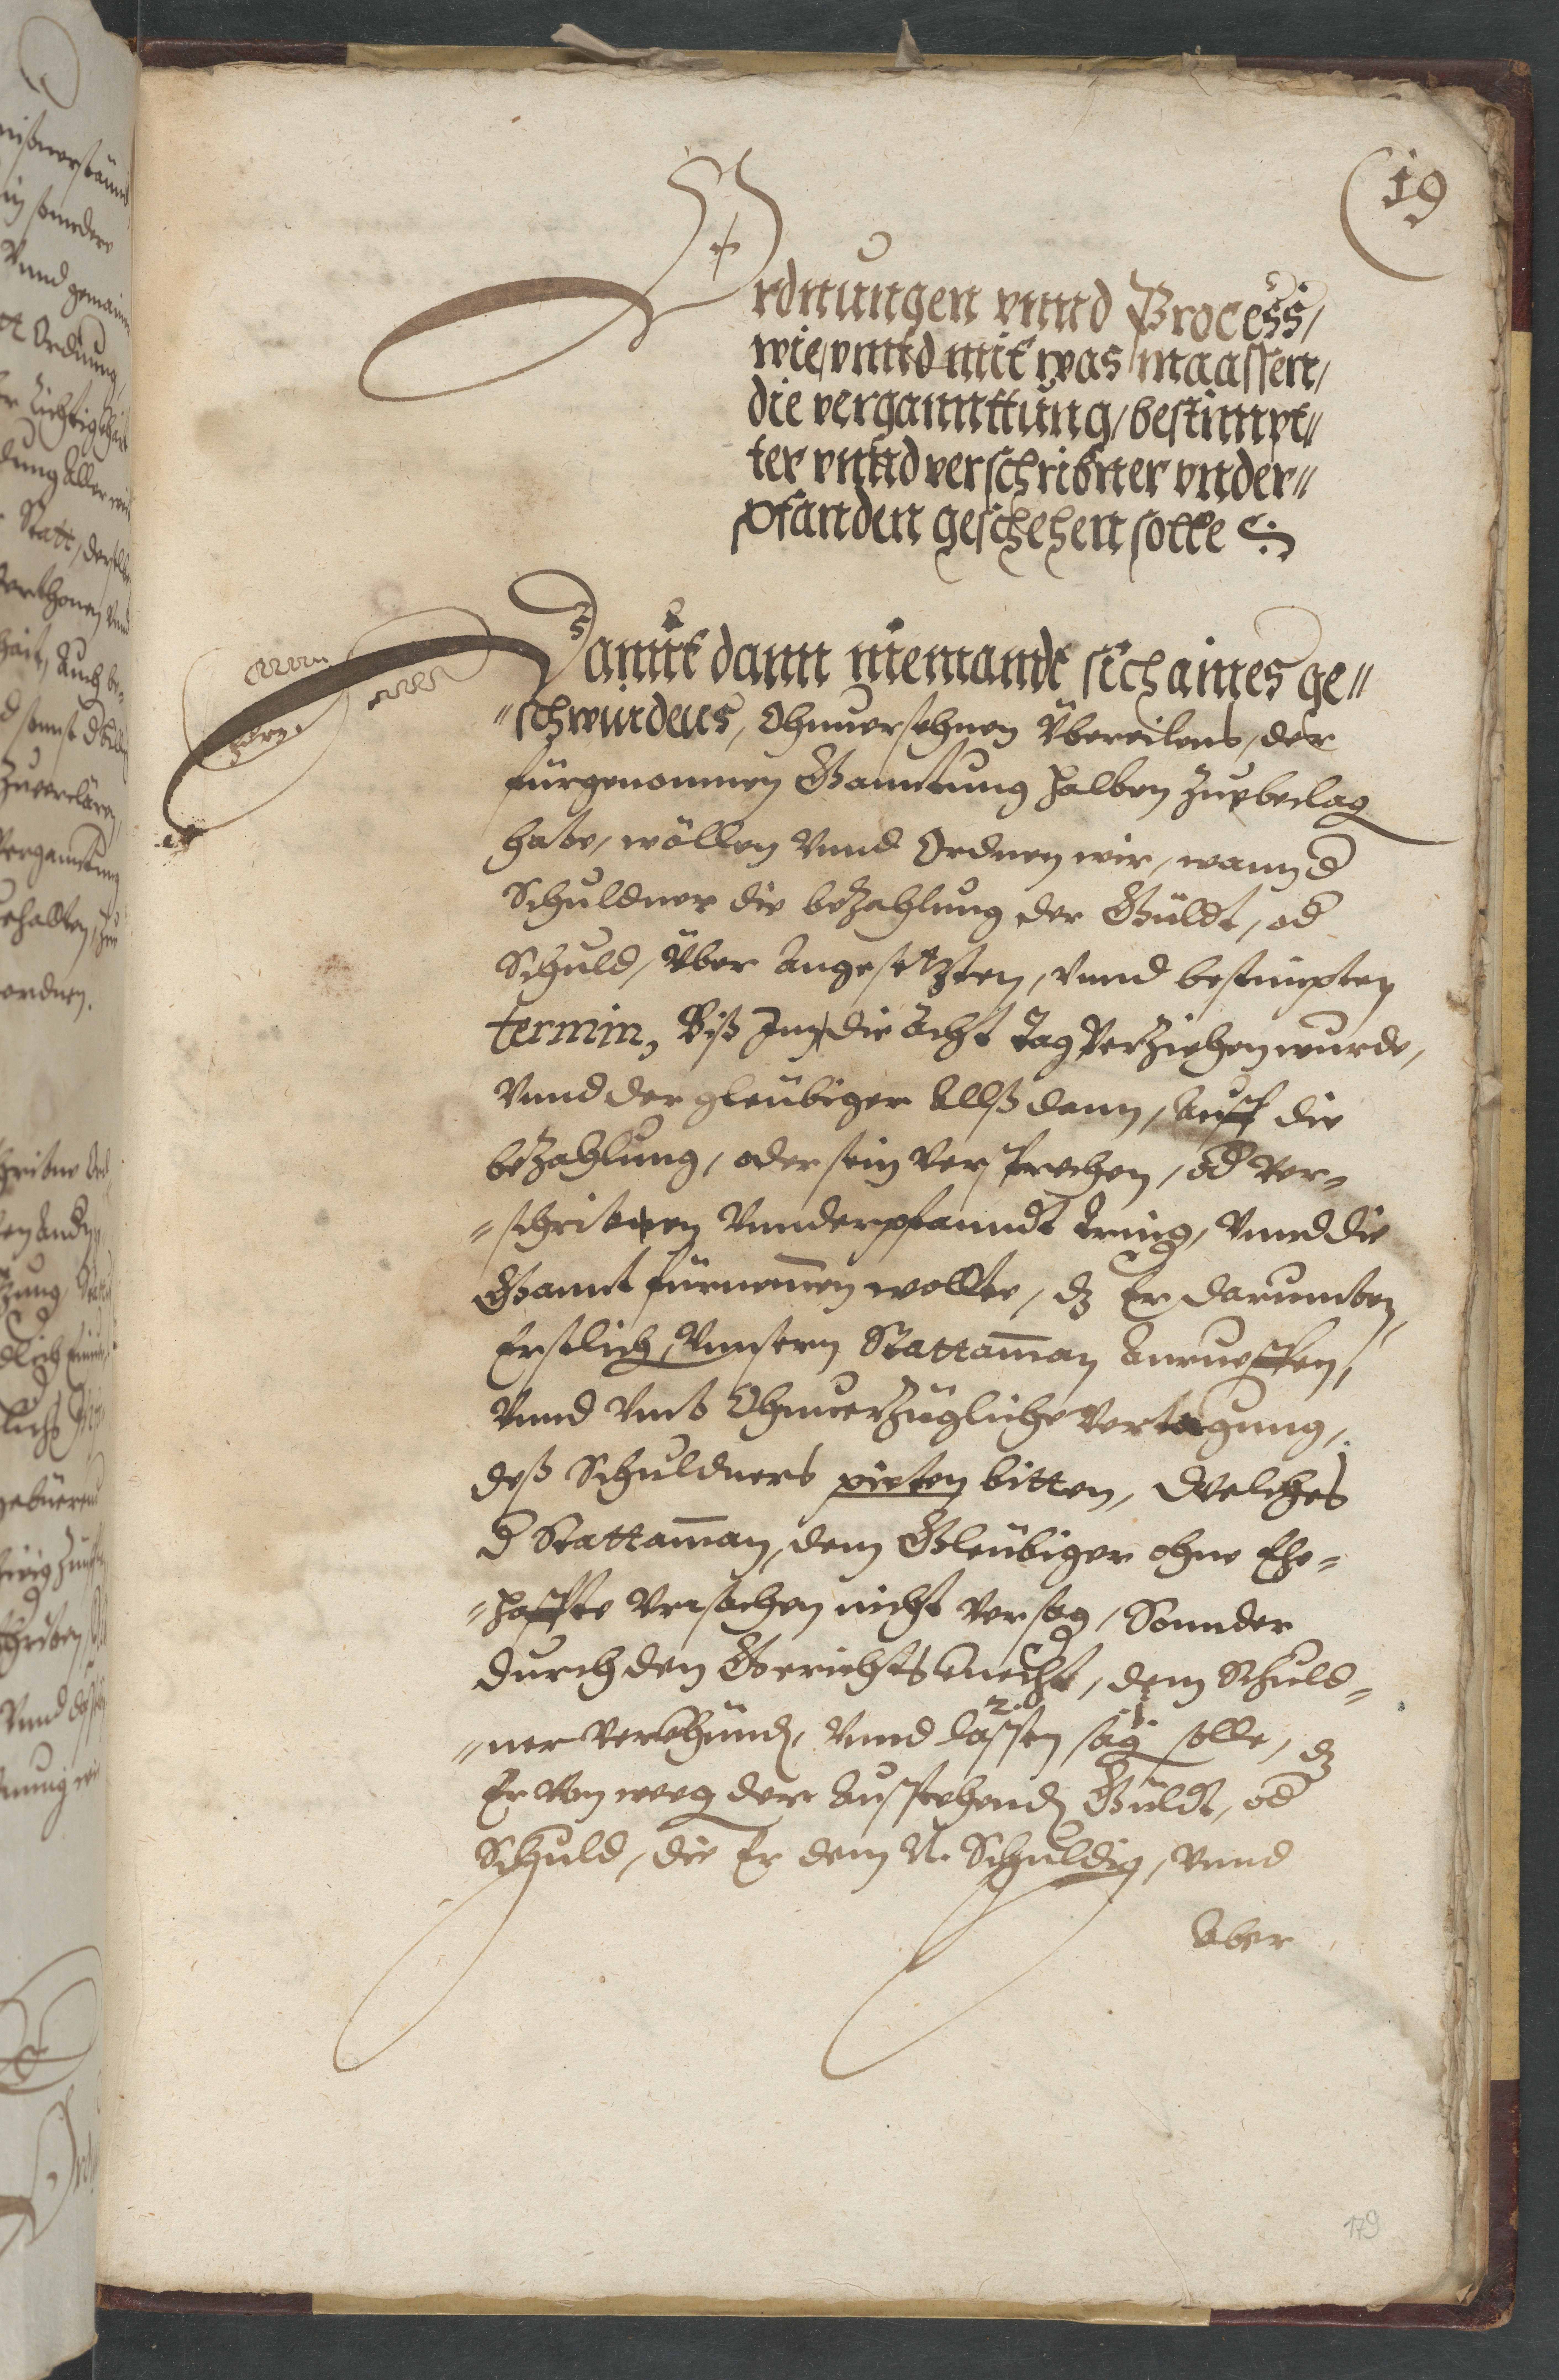 19
Ordnungen vnnd Process,
wie, vnnd mit was maassen,
die vergannttung, bestimpt"
ter vnnd verschribner vnder"
pfanden geschehen solle
Damit dann niemandt sich aines ge"
"schwinden, Ohnuersehnen Übereilens, der
fürgenommen Ganntung halben zu beclag
habe, wöllen Vnnd Ordnen wir, wann d
Schuldner die bezahlung der Güldt, od
Schuld, Über angesetzten, vnnd bestimpten
termin, Biß In die Acht Tag Verziehen wurde,
Vnnd der gleubiger Allß dann, Auff die
bezahlung, oder sein Versprechen, od Ver=
=schribnen Vnnderpfanndt tring, Vnnd die
Gannt fürnemen wollte, dz Er darumben,
Erstlich, Vnnsern Stattaman Anrueffen,
Vnnd Vmb Ohnuerzügliche Vertagung,
deß Schuldners pieten bitten, Welches
d Stattaman, dem Gleubiger ohne Ehe=
=haffte Vrsachen nicht Versag, Sonnder
durch den Gerichtsknecht, dem Schuld=
=ner Verkhünd, Vnnd lassen sag solle, dz
2. 1.
Er Von weeg der Ausstehend Güldt, od
Schuld, die Er dem N. Schuldig, Vnnd
Aber
179